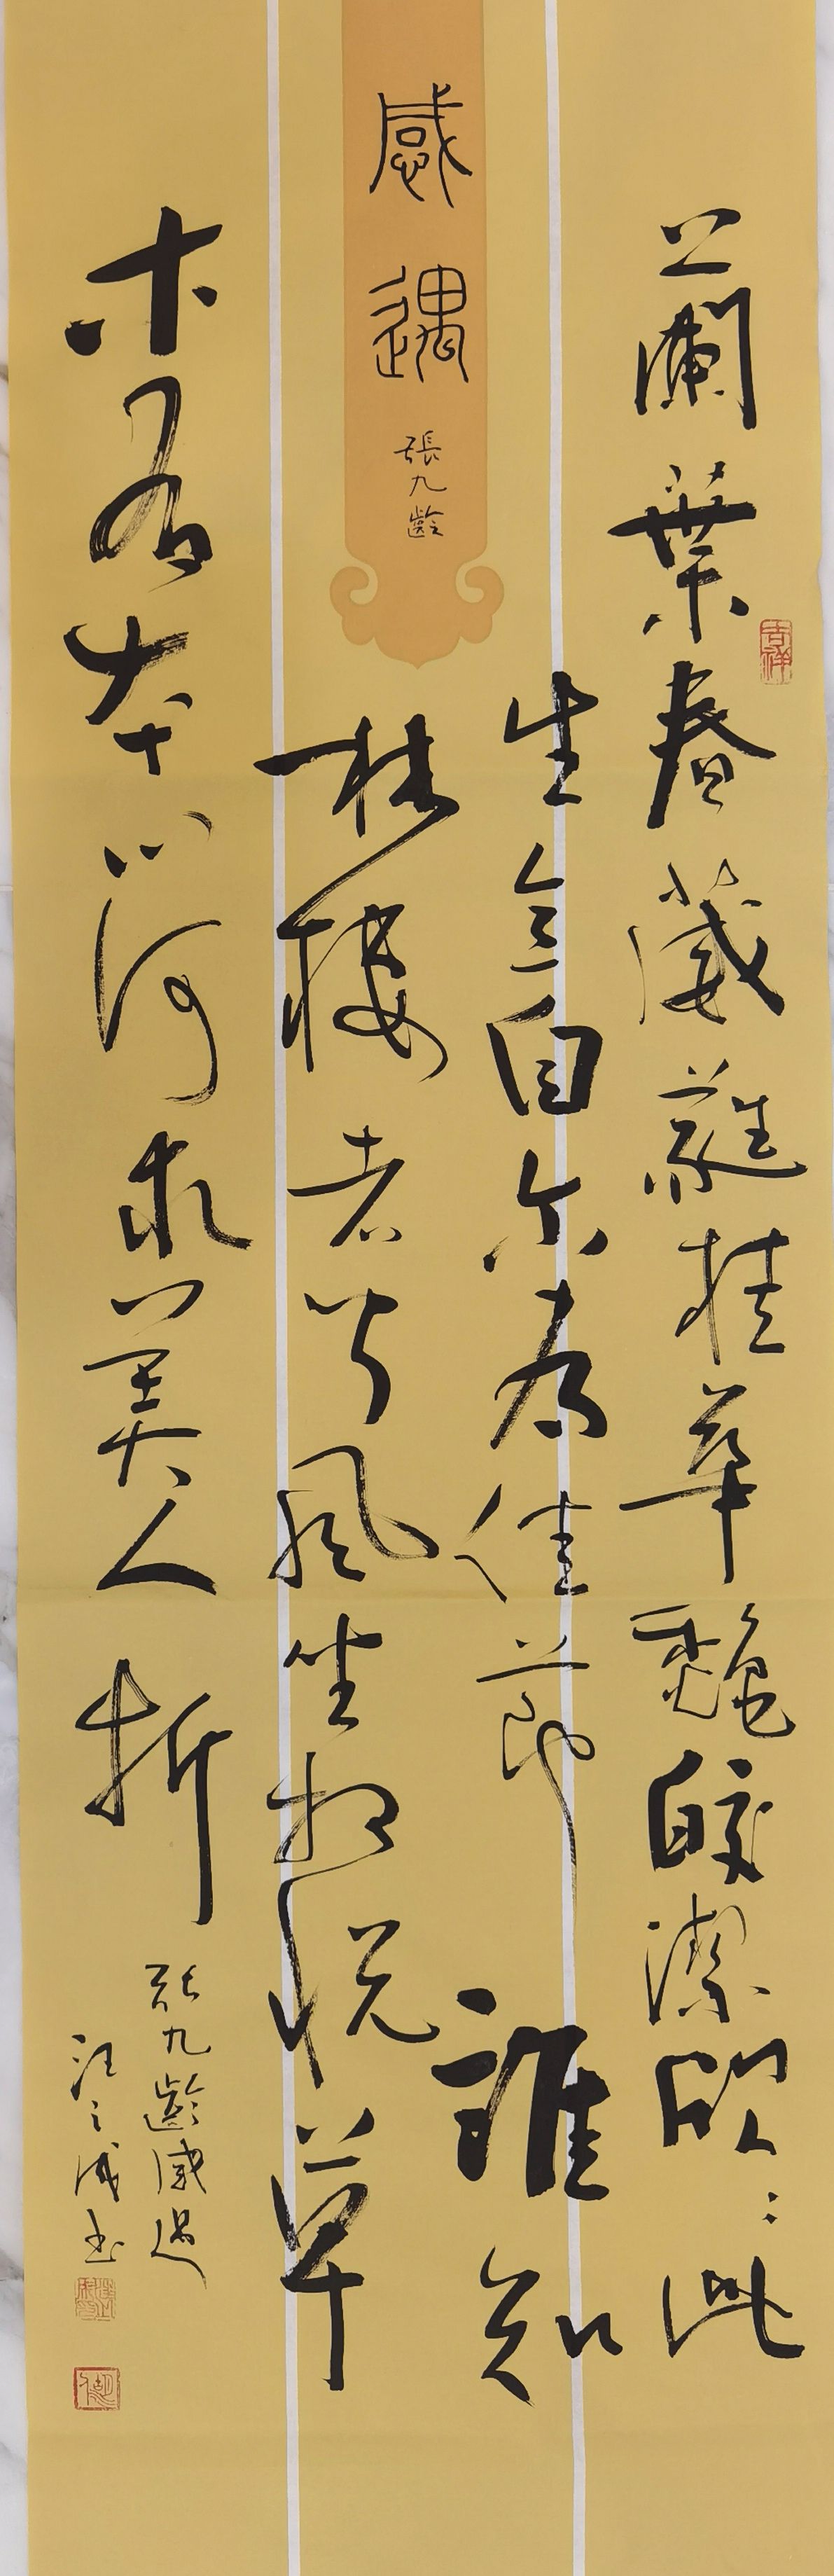 感遇
張九齡
蘭葉春葳蕤桂華魏皎潔欣：此
生意自尔為佳节誰知
林棲者聞風坐相悦草
木有本心何求美人折
張九齡感遇
汪之成书
吉祥